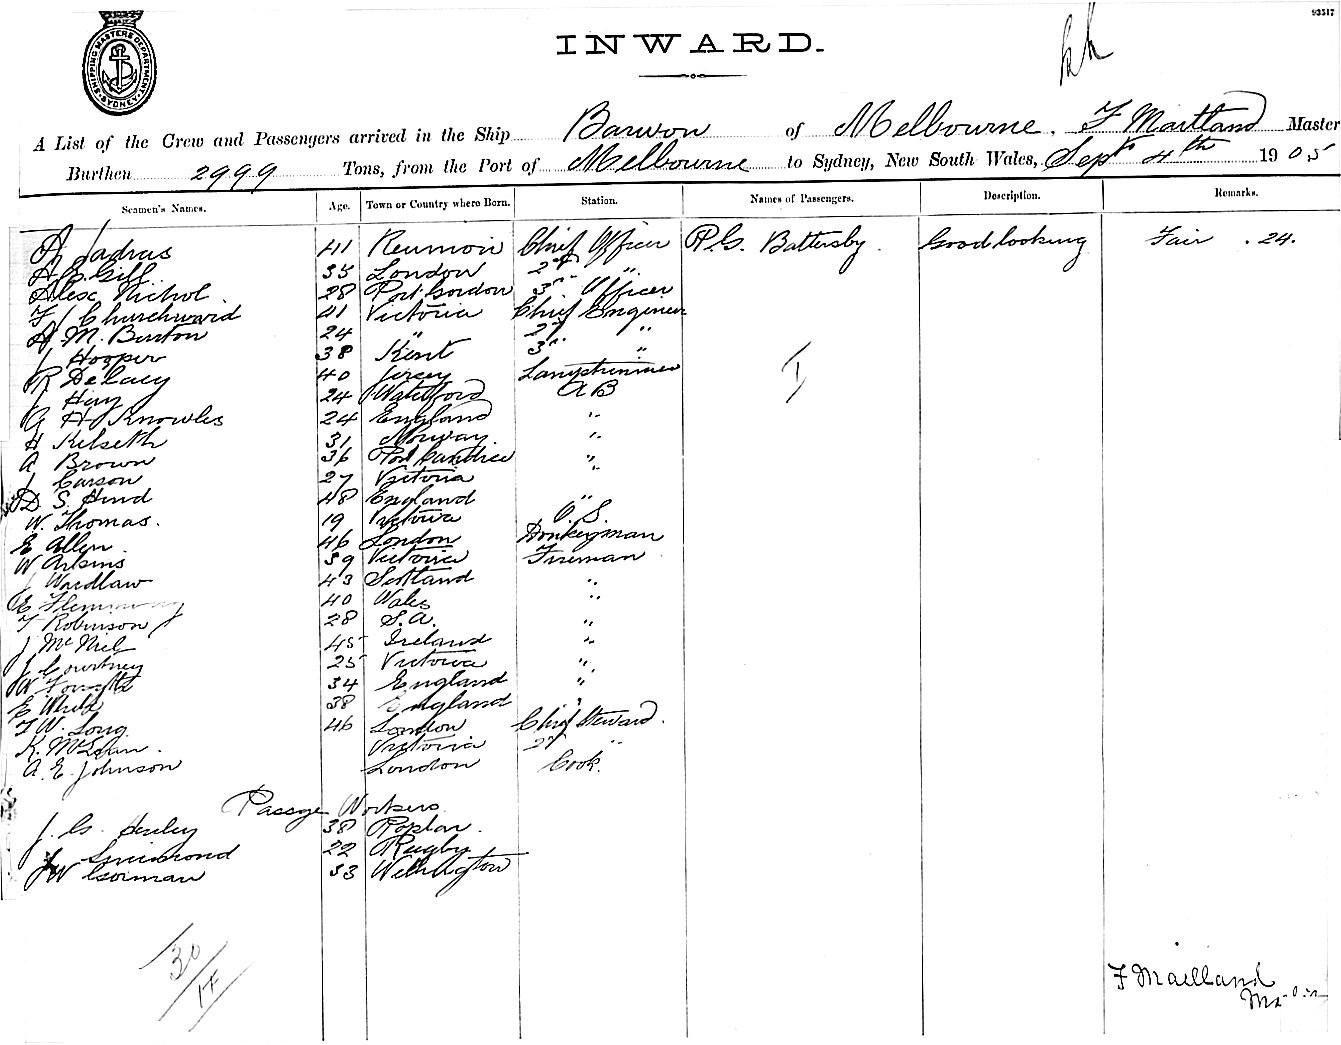 93517
INWARD.
SHIPPING MASTERS DEPARTMENT SYDNEY
A List of the Crew and Passengers arrived in the Ship Barwon of Melbourne. F Maitland Master
Burthen 2999 Tons, from the Port of Melbourne to Sydney, New South Wales, Sept 4th 1905
Seamen's Names. Age. Town or Country where Born. Station. Names of Passengers. Description. Remarks.
41 Reunion Chief Officer P.G. Battersby. Good looking Fair . 24.
35 London 2nd "
Alesc Nichol. 28 Port Gordon 3rd Officer
F J Churchward 41 Victoria Chief Engineer
A. M. Burton 24 " 2nd "
J Hooper 38 Kent 3rd "
R Delacy 40 Jersey Lamptrimmer
J Hay 24 Waterford A B
G H Knowles 24 England "
H Kilseth 31 Norway. "
A Brown 36 Port "
J Carson 27 Victoria
D. S. Hind 48 England "
W. Thomas. 19 Victoria O.S.
E Allen. 46 London Donkeyman
W Arkins 39 Victoria Fireman
J Wardlaw 43 Scotland "
E Fleming 40 Wales "
F Robinson 28 S.A. "
J McNiel 45 Ireland "
J Courtney 25 Victoria "
W Forsyth 34 England "
E White 38 England "
F W. Long 46 London Chief Steward.
K. McLean. Victoria 2nd "
A. E. Johnson London Cook.
Passage Workers
J. G. 38 Poplar.
J Simmond 22 Rugby
J W Gorman 33 Wellington
30/14
F Maitland
Master